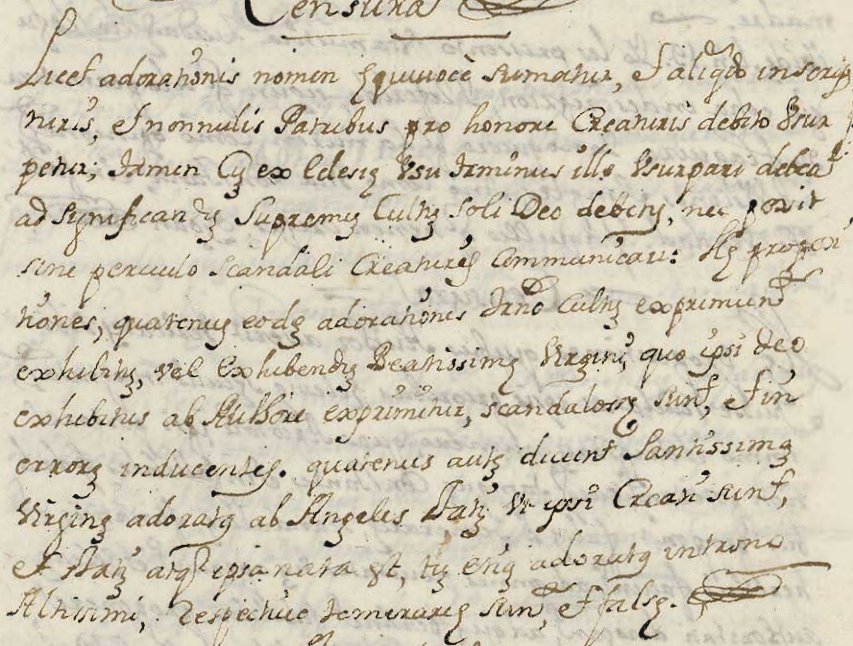 Censura
Licet adorationis nomen Equivocè sumatur, et aliqdo in scrip
turis, et nonnulis Patribus pro honore Creaturis debito Vsur
petur; tamen Cũ ex Eclesię Vsu terminus ille Vsurpari debeat
ad significandũ Supremũ Cultũ soli Deo debitũ, nec possit
sine periculo scandali Creaturis Communicari: Hę proposi
tiones, quatenus eodẽ adorationis terno Cultũ exprimunt
exhibitũ, vel Exhibendũ Beatissimę Virgini, quo ipsi Deo
exhibitus ab Authore exprimitur, scandalosę sunt, et in
errorẽ inducentes. quatenus autẽ dicunt Santissimã
Virginẽ adoratã ab Angelis statĩ Vt ipsi Creati sunt,
et statĩ atq ipsa nata est, tũ etiã adoratã in trono
Altissimi, respectiue temerarię sunt, et falsę.